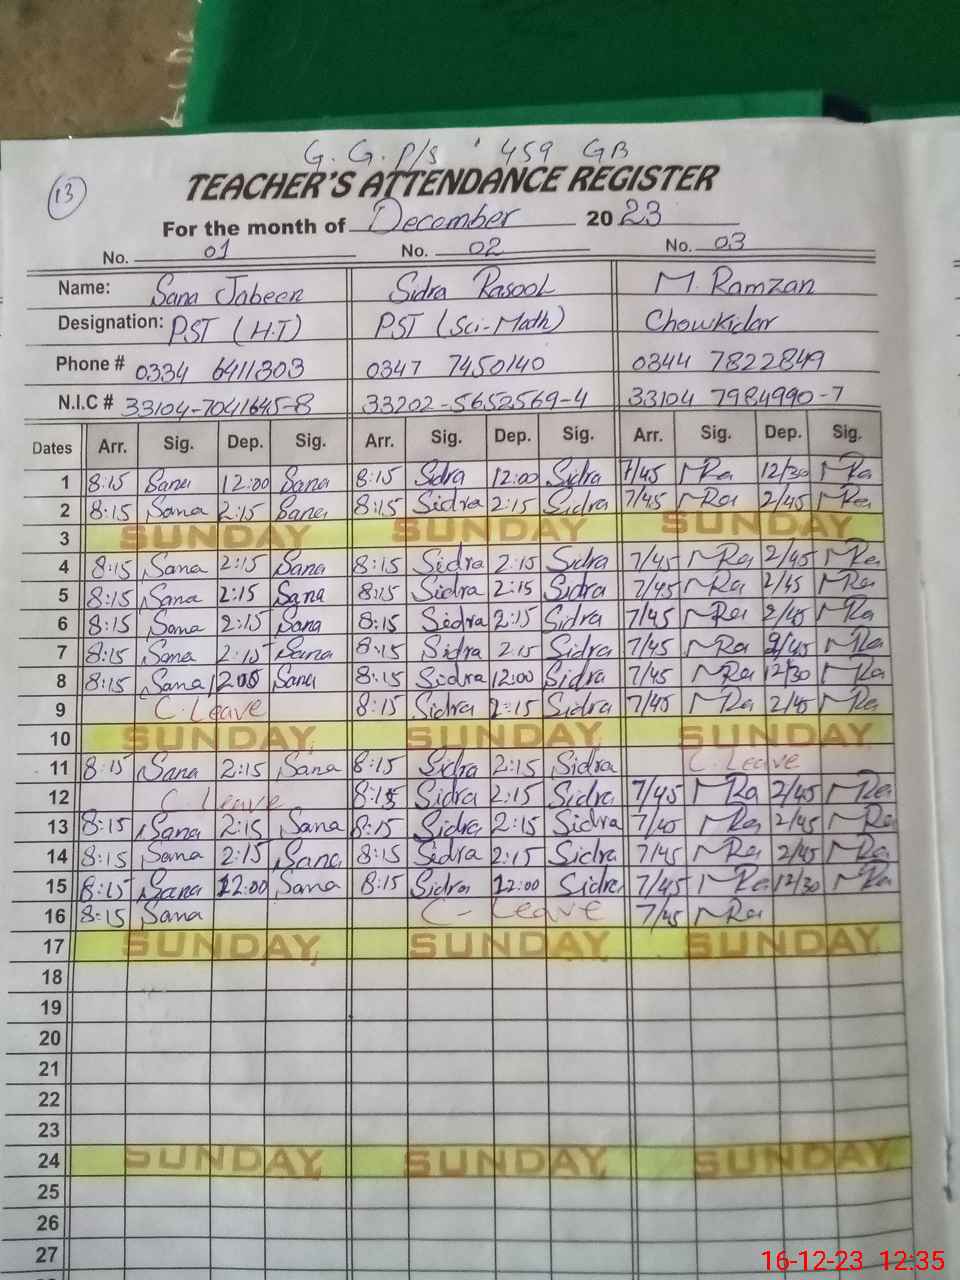 G. G. P/s 459 GB
13
TEACHER'S ATTENDANCE REGISTER
For the month of December 2023
No. 01 No. 02 No. 03
Name: Sana Jabeen Sidra Rasool M. Ramzan
Designation: PST (H.T) PST (Sci-Math) Chowkidar
Phone # 0334 6411303 0347 7450140 0344 7822849
N.I.C # 33104-7041645-8 33202-5652569-4 33104 7984990-7
Dates Arr. Sig. Dep. Sig. Arr. Sig. Dep. Sig. Arr. Sig. Dep. Sig.
1 8:15 Sana 12:00 Sana 8:15 Sidra 12:00 Sidra 7/45 MRa 12/30 MRa
2 8:15 Sana 2:15 Sana 8:15 Sidra 2:15 Sidra 7/45 MRa 2/45 MRa
3 SUNDAY SUNDAY SUNDAY
4 8:15 Sana 2:15 Sana 8:15 Sidra 2:15 Sidra 7/45 MRa 2/45 MRa
5 8:15 Sana 2:15 Sana 8:15 Sidra 2:15 Sidra 7/45 MRa 2/45 MRa
6 8:15 Sana 2:15 Sana 8:15 Sidra 2:15 Sidra 7/45 MRa 2/45 MRa
7 8:15 Sana 2:15 Sana 8:15 Sidra 2:15 Sidra 7/45 MRa 2/45 MRa
8 8:15 Sana 1200 Sana 8:15 Sidra 12:00 Sidra 7/45 MRa 12/30 MRa
9 C. Leave 8:15 Sidra 2:15 Sidra 7/45 MRa 2/45 MRa
10 SUNDAY SUNDAY SUNDAY
11 8:15 Sana 2:15 Sana 8:15 Sidra 2:15 Sidra C. Leave
12 C. Leave 8:15 Sidra 2:15 Sidra 7/45 MRa 2/45 MRa
13 8:15 Sana 2:15 Sana 8:15 Sidra 2:15 Sidra 7/45 MRa 2/45 MRa
14 8:15 Sana 2:15 Sana 8:15 Sidra 2:15 Sidra 7/45 MRa 2/45 MRa
15 8:15 Sana 12:00 Sana 8:15 Sidra 12:00 Sidra 7/45 MRa 12/30 MRa
16 8:15 Sana C- Leave 7/45 MRa
17 SUNDAY SUNDAY SUNDAY
18
19
20
21
22
23
24 SUNDAY SUNDAY SUNDAY
25
26
27
16-12-23 12:35